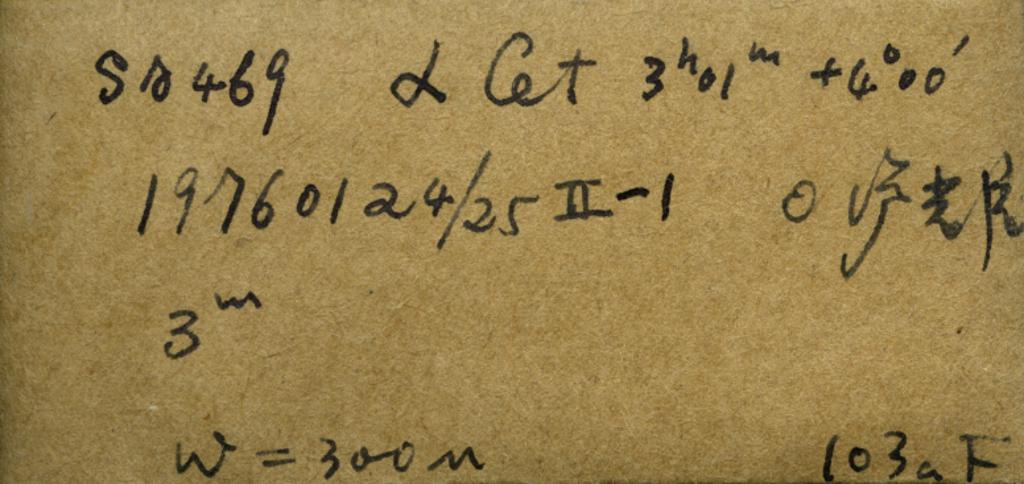 SA469 α Cet 3ʰ01ᵐ +4°00′
19760124/25 II-1 0
3ᵐ
W = 300μ
103aF